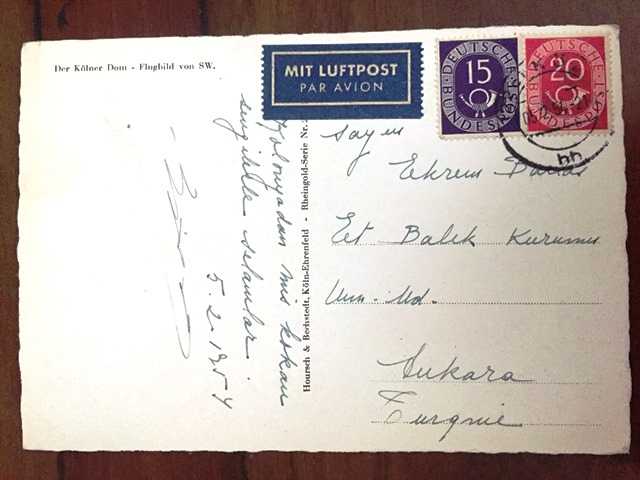 Der Kölner Dom - Flugbild von SW.
MIT LUFTPOST
PAR AVION
15
DEUTSCHE BUNDESPOST
20
DEUTSCHE BUNDESPOST
Kolonyadan mis kokan
sevgilerle selamlar
5.2.1954
Hoursch & Bechstedt, Köln-Ehrenfeld - Rheingold-Serie Nr.
Sayın
Ekrem
Et Balık Kurumu
Um. Md.
Ankara
Turquie